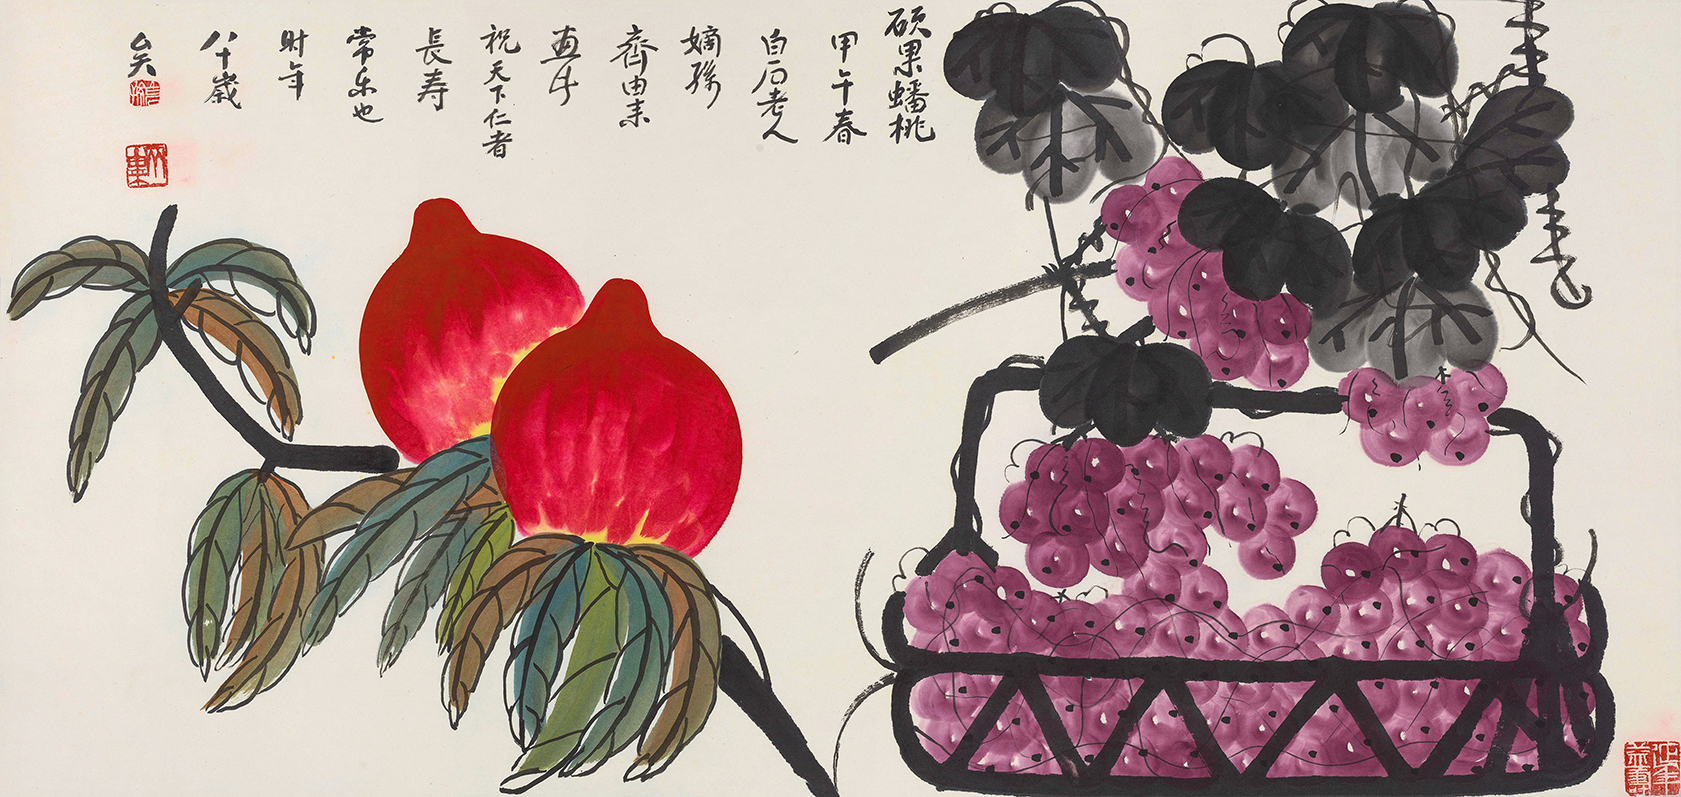 硕果蟠桃
甲午春
白石老人
嫡孫
齊由来
画於
祝天下仁者
長寿
常乐也
时年
八十歲
矣